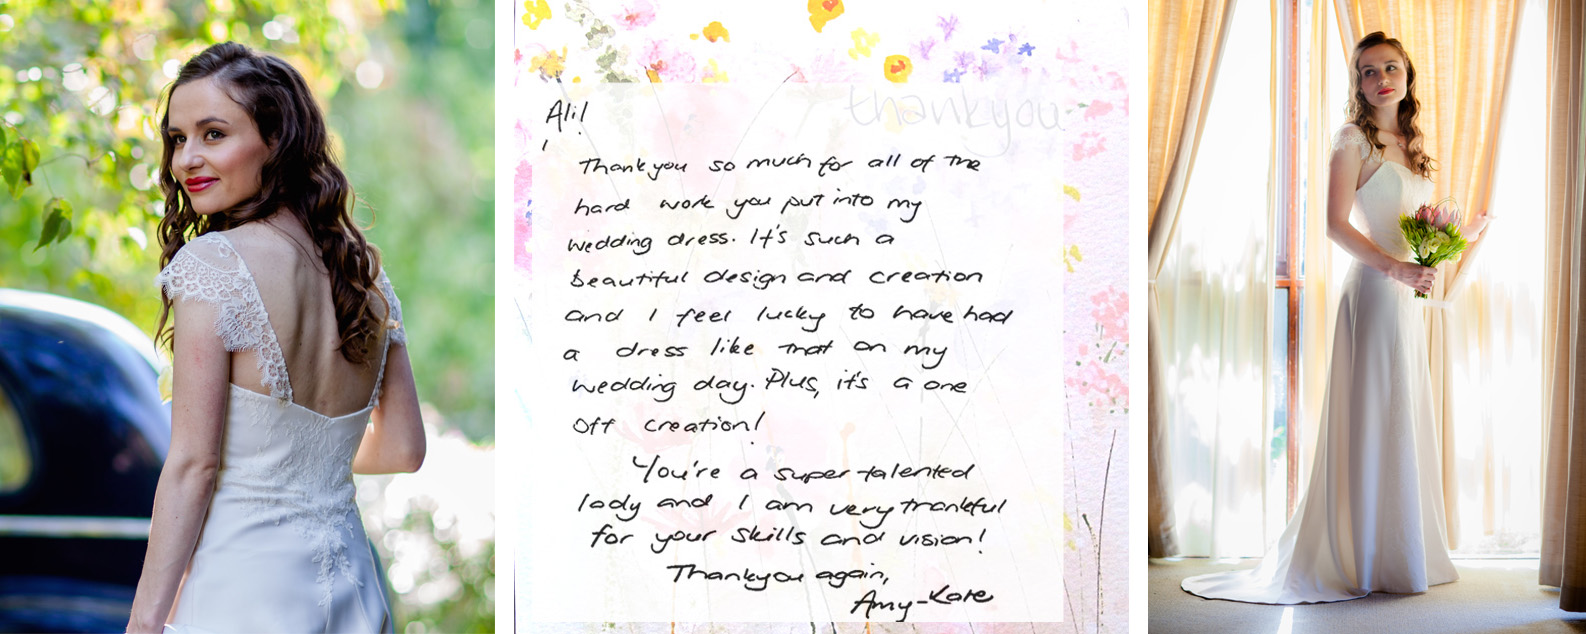 thankyou
Ali!
Thankyou so much for all of the
hard work you put into my
wedding dress. It's such a
beautiful design and creation
and I feel lucky to have had
a dress like that on my
wedding day. Plus, it's a one
off creation!
You're a super talented
lady and I am very thankful
for your skills and vision!
Thankyou again,
Amy-Kate